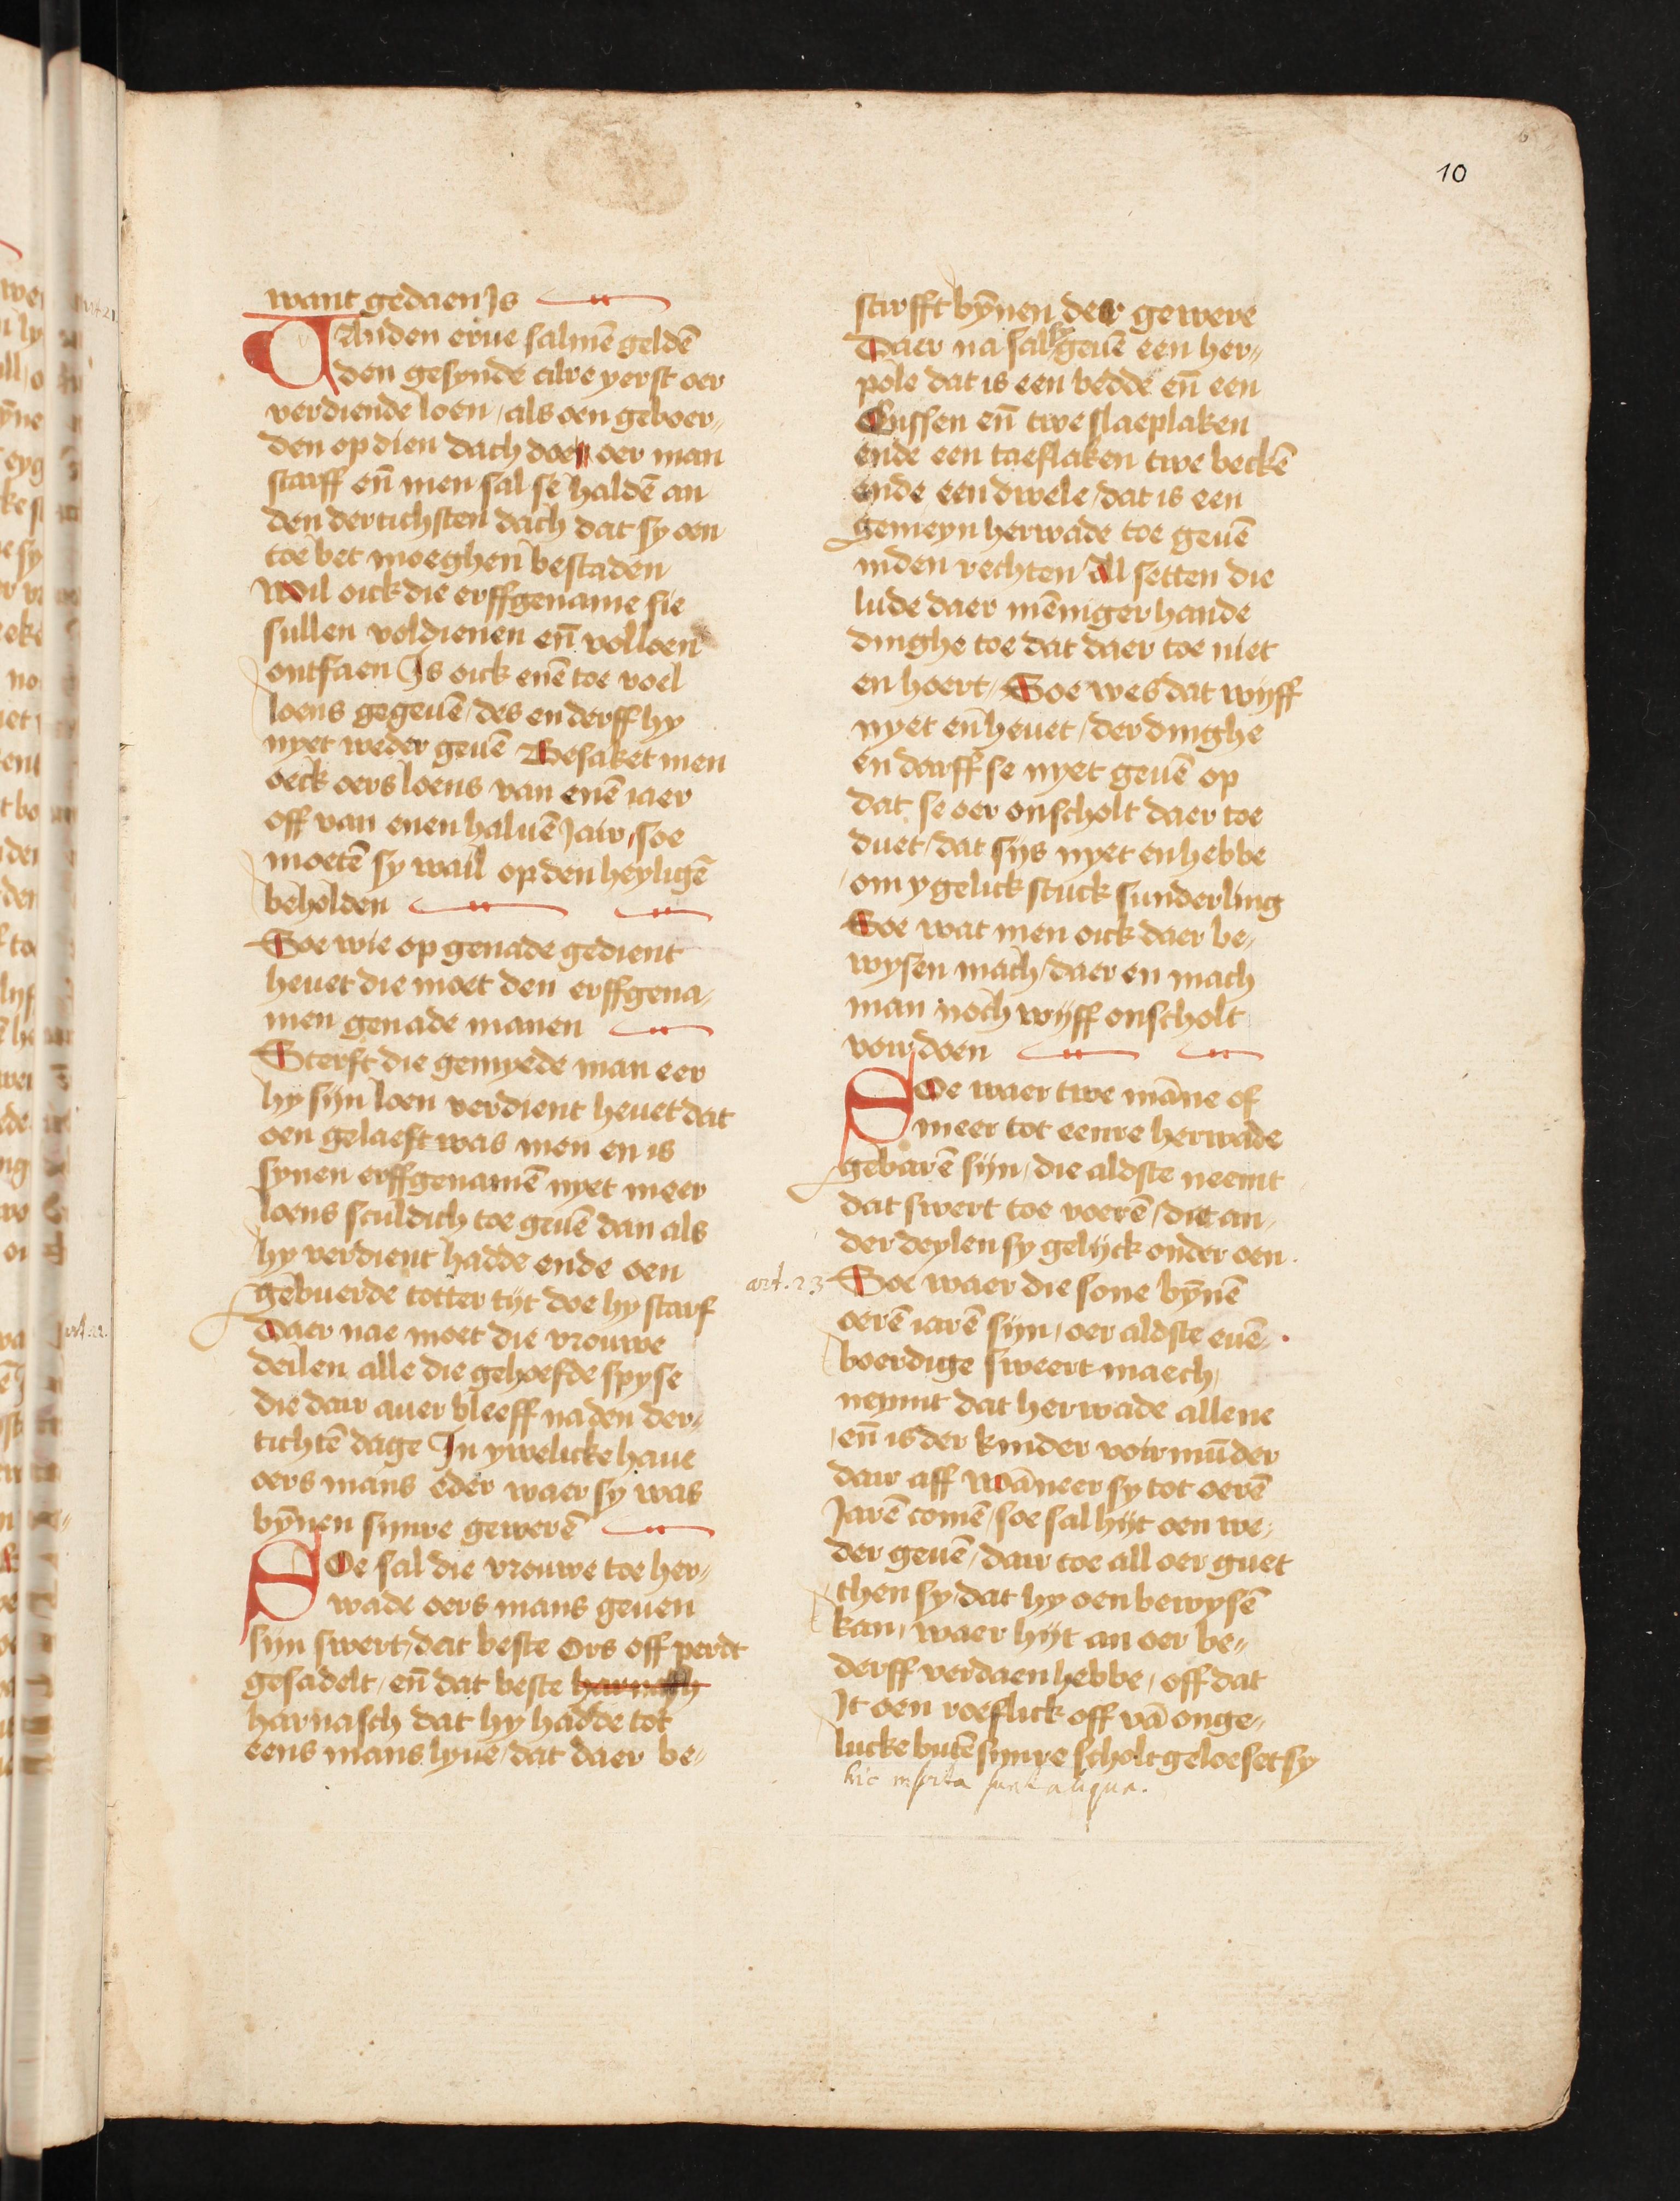 10
want gedaen Is
VAnden erue salmē geldē
den gesynde alre yerst oer
verdiende loen, als oen geboer„
den op dien dach doen oer man
starff en̄ men sal se haldē an
den dertichsten dach dat sy oen
toe bet moeghen bestaden
Wil oick die erffgename sie
sullen voldienen en̄ volloen
ontfaen Is oick enē toe voel
loens gegeuē, des en derff hy
nyet weder geuē Besaket men
oeck oers loens van enē iaer
off van enen haluē Jair, soe
moetē sy wail op den heyligē
beholden
Soe wie op genade gedient
heuet die moet den erffgena„
men genade manen
Sterft die gemyede man eer
hy sijn loen verdient heuet dat
oen gelaeft was men en is
synen erffgenamē nyet meer
loens sculdich toe geuē dan als
hy verdient hadde ende oen
gebuerde totter tijt doe hy starf
Daer nae moet die vrouwe
deilen alle die gehoefde spyse
die dair auer bleeff na den der„
tichtē dage In ywelicke haue
oers mans eder waer sy was
bȳnen synre gewerē
SOe sal die vrouwe toe her„
wade oers mans geuen
sijn swert, dat beste Ors off perdt
gesadelt, en̄ dat beste harnasch
harnasch dat hy hadde tot
eens mans lyue, dat daer be„
starfft bȳnen der gewere
Daer na sal se geuē een her„
pole dat is een bedde en̄ een
Cussen en̄ twe slaeplaken
ende een taeflaken twe beckē
ende een dwele, dat is een
gemeyn herwade toe geuē
inden rechten All setten die
lude daer mēniger hande
dinghe toe dat daer toe niet
en hoert, Soe wes dat wijff
nyet en heuet, der dinghe
en darff se nyet geuē op
dat se oer onscholt daer toe
duet, dat sijs nyet en hebbe
om ygelick stuck sunderling
Soe wat men oick daer be„
wysen mach, daer en mach
man noch wijff onscholt
voir doen
SOe waer twe māne of
meer tot eenre herwade
gebarē sijn, die aldste neemt
dat swert toe voerē, die an„
der deylen sy gelijck onder oen.
art. 23 Soe waer die sone bȳnē
oerē iarē sijn, oer aldste euē„
boerdige sweert maech,
neymt dat herwade allene
en̄ is der kinder voirmūder
dair aff Wāneer sy tot oerē
Jarē comē, soe sal hijt oen we„
der geuē, dair toe all oer guet
then sy dat hy oen bewysē
kan, waer hijt an oer be„
derff verdaen hebbe, off dat
It oen roeflick off vā onge„
lucke butē synre scholt geloeset sy
hic inserta sunt aliqua.